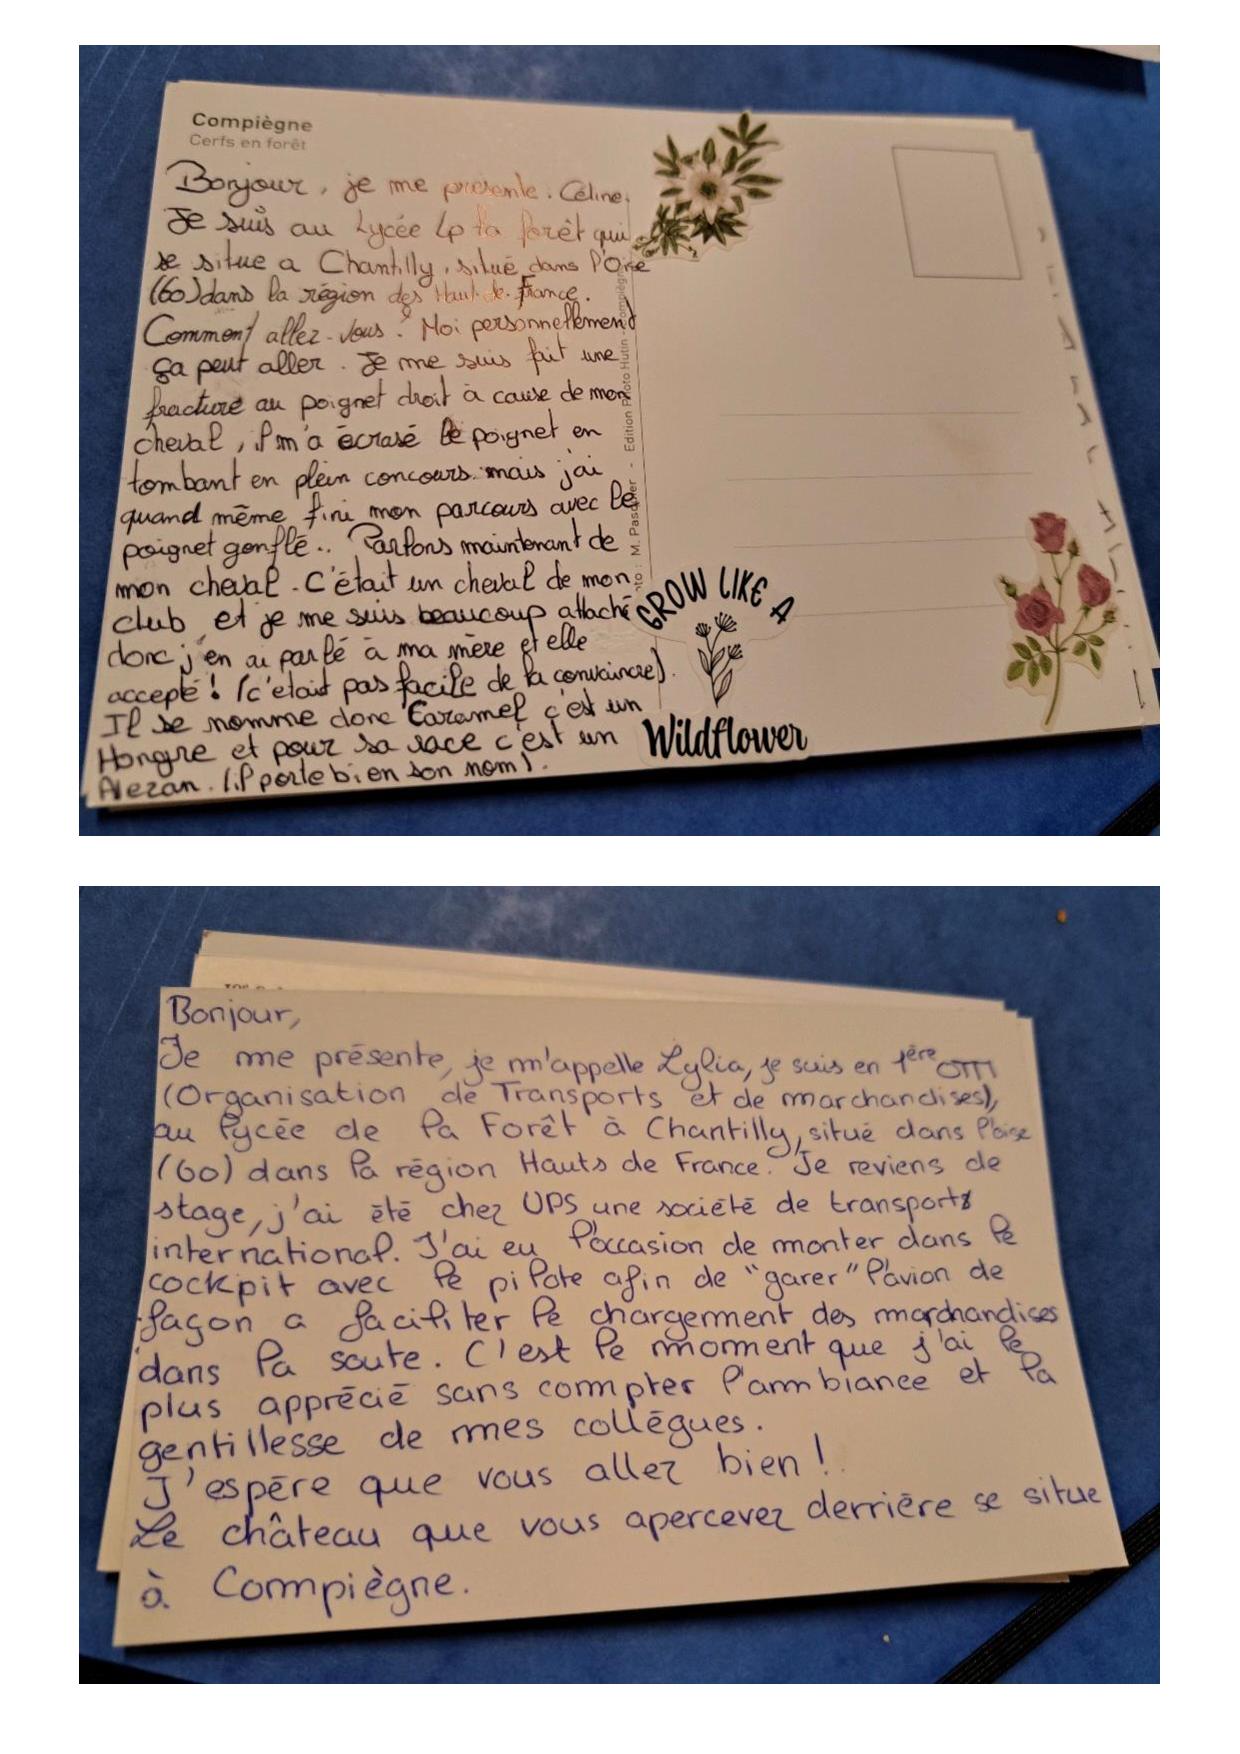 Compiègne
Cerfs en forêt
Bonjour, je me présente. Céline.
Je suis au Lycée Lp la forêt qui
se situe a Chantilly, situé dans l'Oise
(60) dans la région des Haut-de-France.
Comment allez-vous? Moi personnellement
ça peut aller. Je me suis fait une
fracture au poignet droit à cause de mon
cheval, il m'a écrasé le poignet en
tombant en plein concours mais j'ai
quand même fini mon parcours avec le
poignet gonflé.. Parlons maintenant de
mon cheval. C'était un cheval de mon
club et je me suis beaucoup attaché
donc j'en ai parlé à ma mère et elle
accepté! (c'était pas facile de la convaincre).
Il se nomme donc Caramel c'est un
Hongre et pour sa race c'est un
Alezan. (il porte bien son nom).
M. Pasquier - Edition Photo Hutin - Compiègne
GROW LIKE A
Wildflower
Bonjour,
Je me présente, je m'appelle Lylia, je suis en 1ère OTM
(Organisation de Transports et de marchandises),
au lycée de la Forêt à Chantilly, situé dans l'oise
(60) dans la région Hauts de France. Je reviens de
stage, j'ai été chez UPS une société de transports
international. J'ai eu l'occasion de monter dans le
cockpit avec le pilote afin de "garer" l'avion de
façon a faciliter le chargement des marchandises
dans la soute. C'est le moment que j'ai le
plus apprécié sans compter l'ambiance et la
gentillesse de mes collégues.
J'espère que vous allez bien!
Le château que vous apercevez derrière se situe
à Compiègne.